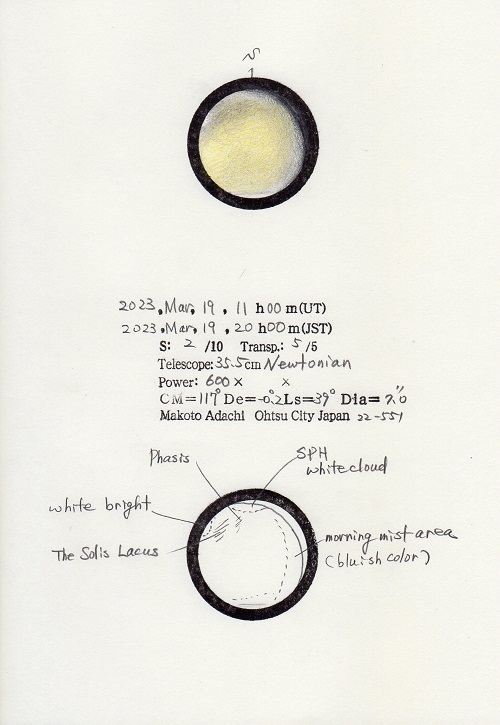 S
2023, Mar, 19, 11 h 00 m (UT)
2023, Mar, 19, 20 h 00 m (JST)
S: 2 /10 Transp.: 5 /5
Telescope: 35.5cm Newtonian
Power: 600 × ×
CM=117° De=-0.2° Ls=39° Dia= 7.0"
Makoto Adachi Ohtsu City Japan 22-551
Phasis
SPH
white cloud
white bright
The Solis Lacus
morning mist area
(bluish color)